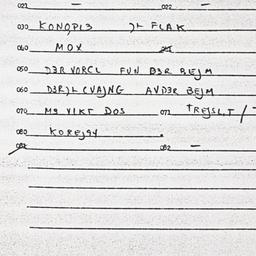 021 — 022 —
030 KONQPI3 )L FLAK
040 MOX
050 D3R VORCL FUN B3R BEJM
060 D3R)L CVAJNG AVD3R BEJM
070 M9 VIKT DOS 071 TREJSLT /
080 KOREJ94
082 —